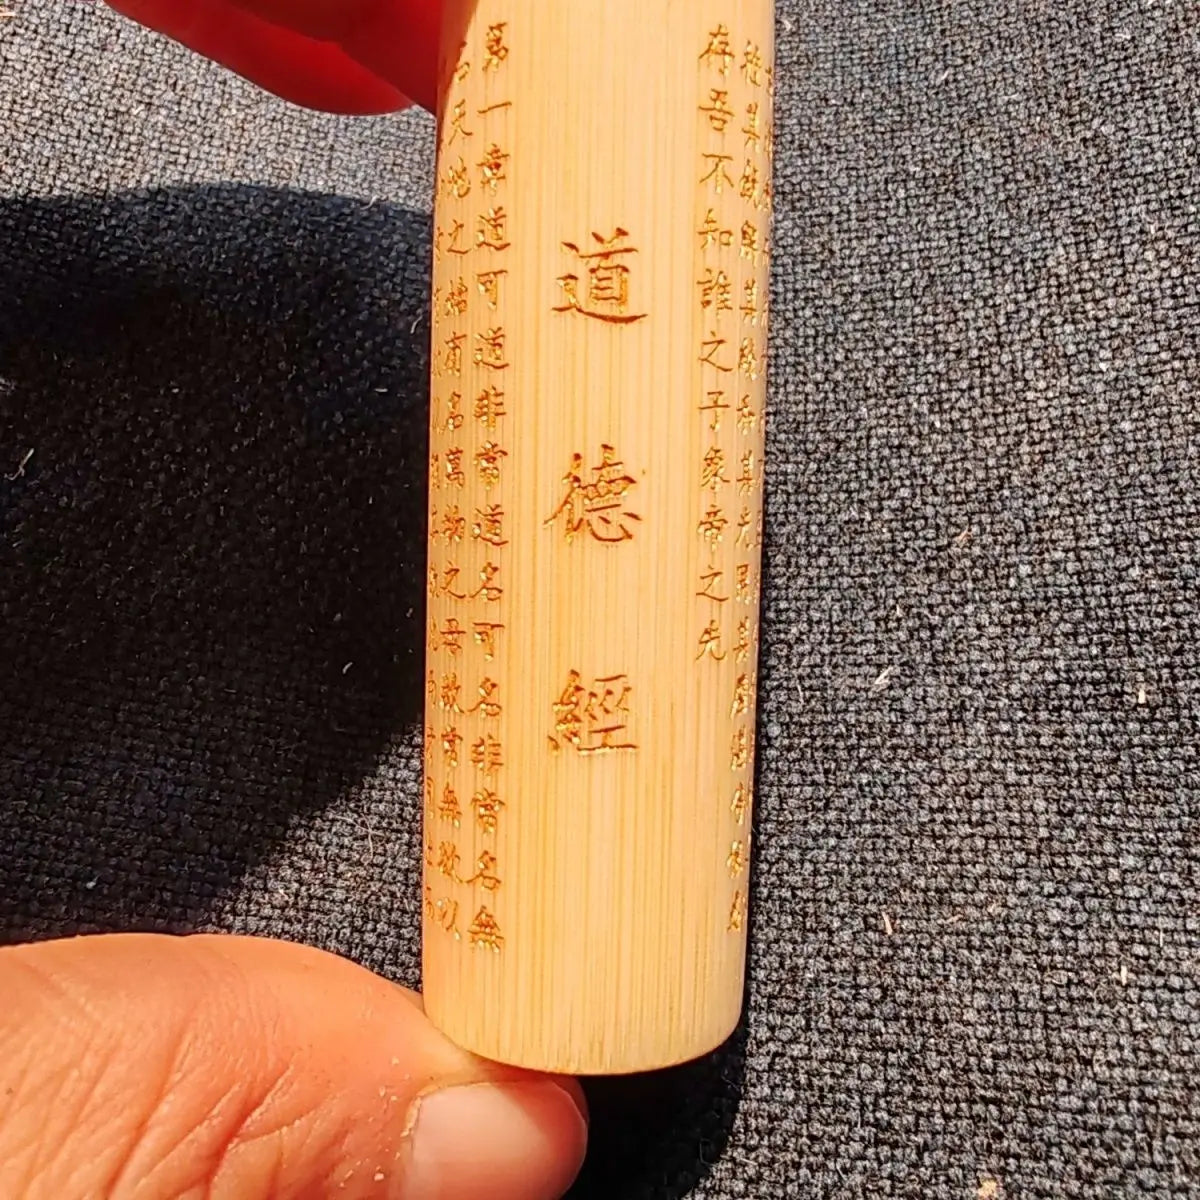 挫其銳解其紛和其光同其塵湛兮似或
存吾不知誰之子象帝之先
道德經
第一章道可道非常道名可名非常名無
名天地之始有名萬物之母故常無欲以